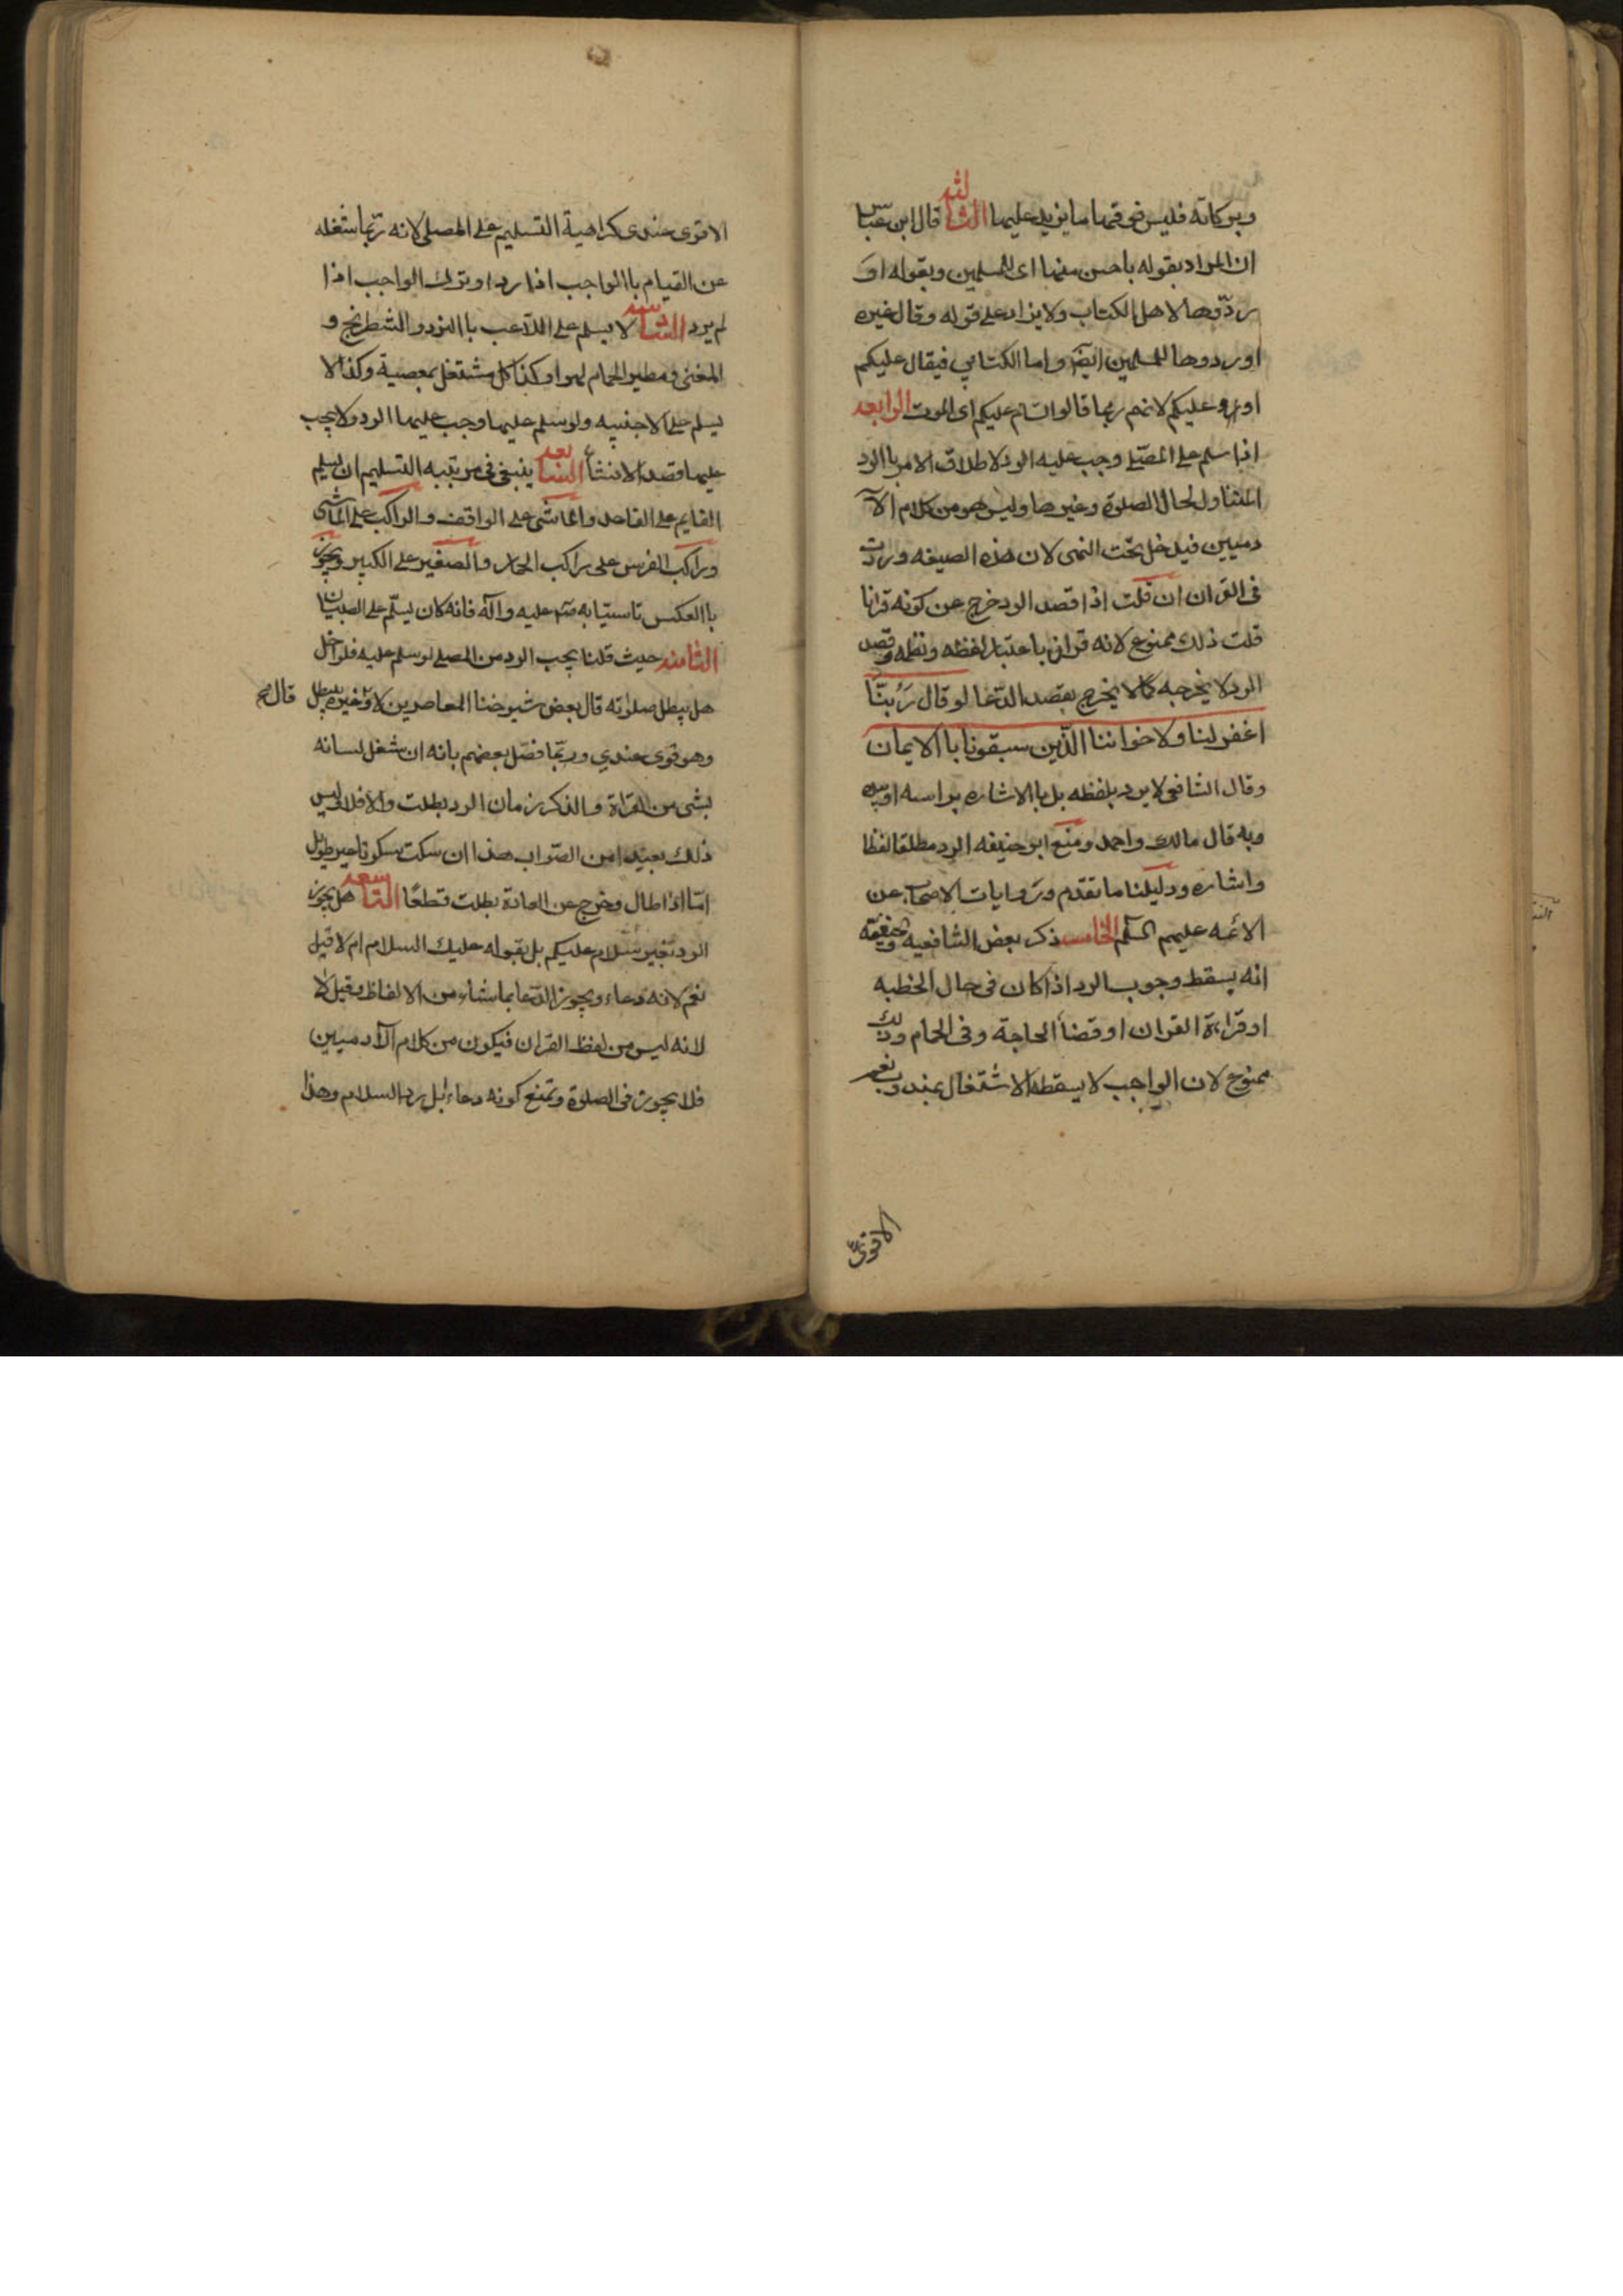 وبركاته فليس فوقهما ما يزيد عليهما الثالثه قال ابن عباس
ان المراد بقوله باحسن منها اى للمسلمين وبقوله او
ردّوها لاهل الكتاب ولا يزاد على قوله وقال غيره
اوردوها للمسلمين ايضا واما الكتابي فيقال عليكم
او وعليكم لانهم ربما قالوا السّام عليكم اى الموت الرابعه
اذا سلم على المصلّى وجب عليه الرد لاطلاق الامر باالرد
المتناول لحال الصلوة وغيرها وليس هو من كلام الآ
دميين فيدخل تحت النهى لان هذه الصيغه وردت
فى القران ان قلت اذا قصد الرد خرج عن كونه قرانا
قلت ذلك ممنوع لانه قران باعتبار لفظه ونظمه وقصد
الرد لا يخرجه كما لا يخرج بقصد الدّعا لو قال رَبنَّا
اغفر لنا ولاخواننا الّذين سبقونا باالايمان
وقال الشافعى لا يرد بلفظه بل باالاشاره براسه او بيده
وبه قال مالك واحمد ومنع ابو حنيفه الرد مطلقا لفظا
واشاره ودليلنا ما تقدّم وروايات الاصحاب عن
الائمه عليهم السّلم الخامسه ذكر بعض الشافعيه والحنفيّة
انه يسقط وجوب الرد اذا كان فى حال الخطبه
او قراءة القران او قضأ الحاجة وفى الحمام وذلك
ممنوع لان الواجب لا يسقطه الاشتغال بمندوب نعم
الاقوىّ
الاقوى عندى كراهية التسليم على المصلى لانه ربّما شغله
عن القيام باالواجب اذا رد او بترك الواجب اذا
لم يرد السادسه لا يسلم على اللّاعب باالنرد والشطرنج و
المغنى ومطير الحمام لهوا وكذا كل مشتغل بمعصية وكذا لا
يسلم على الاجنبيه ولو سلم عليها وجب عليها الرد ولا يجب
عليها قصد الانشأ السابعه ينبغى فى مرتبه التسليم ان يسلم
القايم على القاعد والماشى على الواقف والراكب على الماشى
وراكب الفرس على راكب الحمار والصغير على الكبير ويجوز
باالعكس تاسيّا به صلى عليه وآله فانه كان يسلّم على الصبيان
الثامنه حيث قلنا يجب الرد من المصلى لو سلم عليه فلو اخل
هل يبطل صلوته قال بعض شيوخنا المعاصرين لا وغيره يبطل قال
وهو قوى عندي وربّما فصّل بعضهم بانه ان شغل لسانه
بشى من القراة والذكر زمان الرد بطلت والا فلا وليس
ذلك بعيدا من الصّواب هذا ان سكت سكوتا غير طويل
امّا اذا طال وخرج عن العادة بطلت قطعًا التاسعه هل يجوز
الرد بغير سلام عليكم بل بقوله عليك السلام ام لا قيل
نعم لانه دعاء ويجوز الدّعا بما شاء من الالفاظ وقيل لا
لانه ليس من لفظ القران فيكون من كلام الآدميين
فلا يجوز فى الصلوة ونمنع كونه دعاء بل رد السلام وهذا